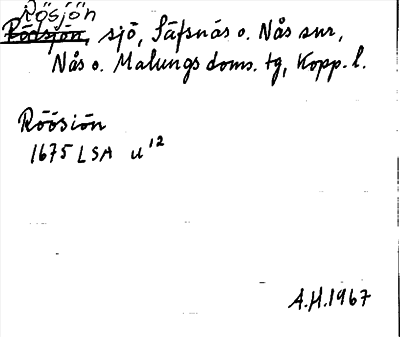 Rösjön
Röösjön, sjö, Säfsnäs o. Nås snr,
Nås o. Malungs doms. tg, Kopp. l.
Röösiön
1675 LSA u¹²
A.H. 1967